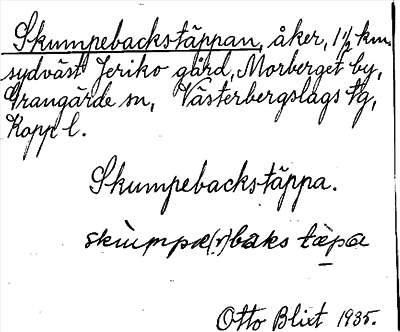 Skumpebackstäppan, åker, 1½ km.
sydväst Jeriko gård, Morberget by,
Grangärde sn, Västerbergslags tg,
Kopp l.
Skumpebackstäppa.
skùmpæ(r)baks tæpa
Otto Blixt 1935.